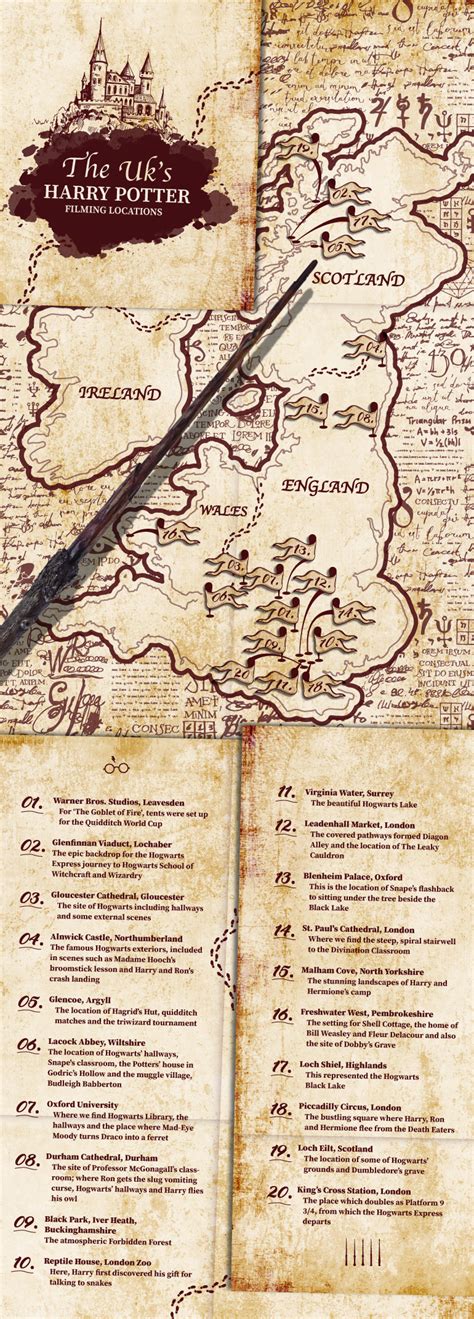 The Uk's
HARRY POTTER
FILMING LOCATIONS
19.
02.
17.
05.
SCOTLAND
04.
IRELAND
15.
08.
ENGLAND
WALES
16.
03.
13.
07.
12.
06.
14.
20.
11.
18.
Triangular Prism
01. Warner Bros. Studios, Leavesden
For 'The Goblet of Fire', tents were set up
for the Quidditch World Cup
02. Glenfinnan Viaduct, Lochaber
The epic backdrop for the Hogwarts
Express journey to Hogwarts School of
Witchcraft and Wizardry
03. Gloucester Cathedral, Gloucester
The site of Hogwarts including hallways
and some external scenes
04. Alnwick Castle, Northumberland
The famous Hogwarts exteriors, included
in scenes such as Madame Hooch's
broomstick lesson and Harry and Ron's
crash landing
05. Glencoe, Argyll
The location of Hagrid's Hut, quidditch
matches and the triwizard tournament
06. Lacock Abbey, Wiltshire
The location of Hogwarts' hallways,
Snape's classroom, the Potters' house in
Godric's Hollow and the muggle village,
Budleigh Babberton
07. Oxford University
Where we find Hogwarts Library, the
hallways and the place where Mad-Eye
Moody turns Draco into a ferret
08. Durham Cathedral, Durham
The site of Professor McGonagall's class-
room; where Ron gets the slug vomiting
curse, Hogwarts' hallways and Harry flies
his owl
09. Black Park, Iver Heath,
Buckinghamshire
The atmospheric Forbidden Forest
10. Reptile House, London Zoo
Here, Harry first discovered his gift for
talking to snakes
11. Virginia Water, Surrey
The beautiful Hogwarts Lake
12. Leadenhall Market, London
The covered pathways formed Diagon
Alley and the location of The Leaky
Cauldron
13. Blenheim Palace, Oxford
This is the location of Snape's flashback
to sitting under the tree beside the
Black Lake
14. St. Paul's Cathedral, London
Where we find the steep, spiral stairwell
to the Divination Classroom
15. Malham Cove, North Yorkshire
The stunning landscapes of Harry and
Hermione's camp
16. Freshwater West, Pembrokeshire
The setting for Shell Cottage, the home of
Bill Weasley and Fleur Delacour and also
the site of Dobby's Grave
17. Loch Shiel, Highlands
This represented the Hogwarts
Black Lake
18. Piccadilly Circus, London
The bustling square where Harry, Ron
and Hermione flee from the Death Eaters
19. Loch Eilt, Scotland
The location of some of Hogwarts'
grounds and Dumbledore's grave
20. King's Cross Station, London
The place which doubles as Platform 9
3/4, from which the Hogwarts Express
departs